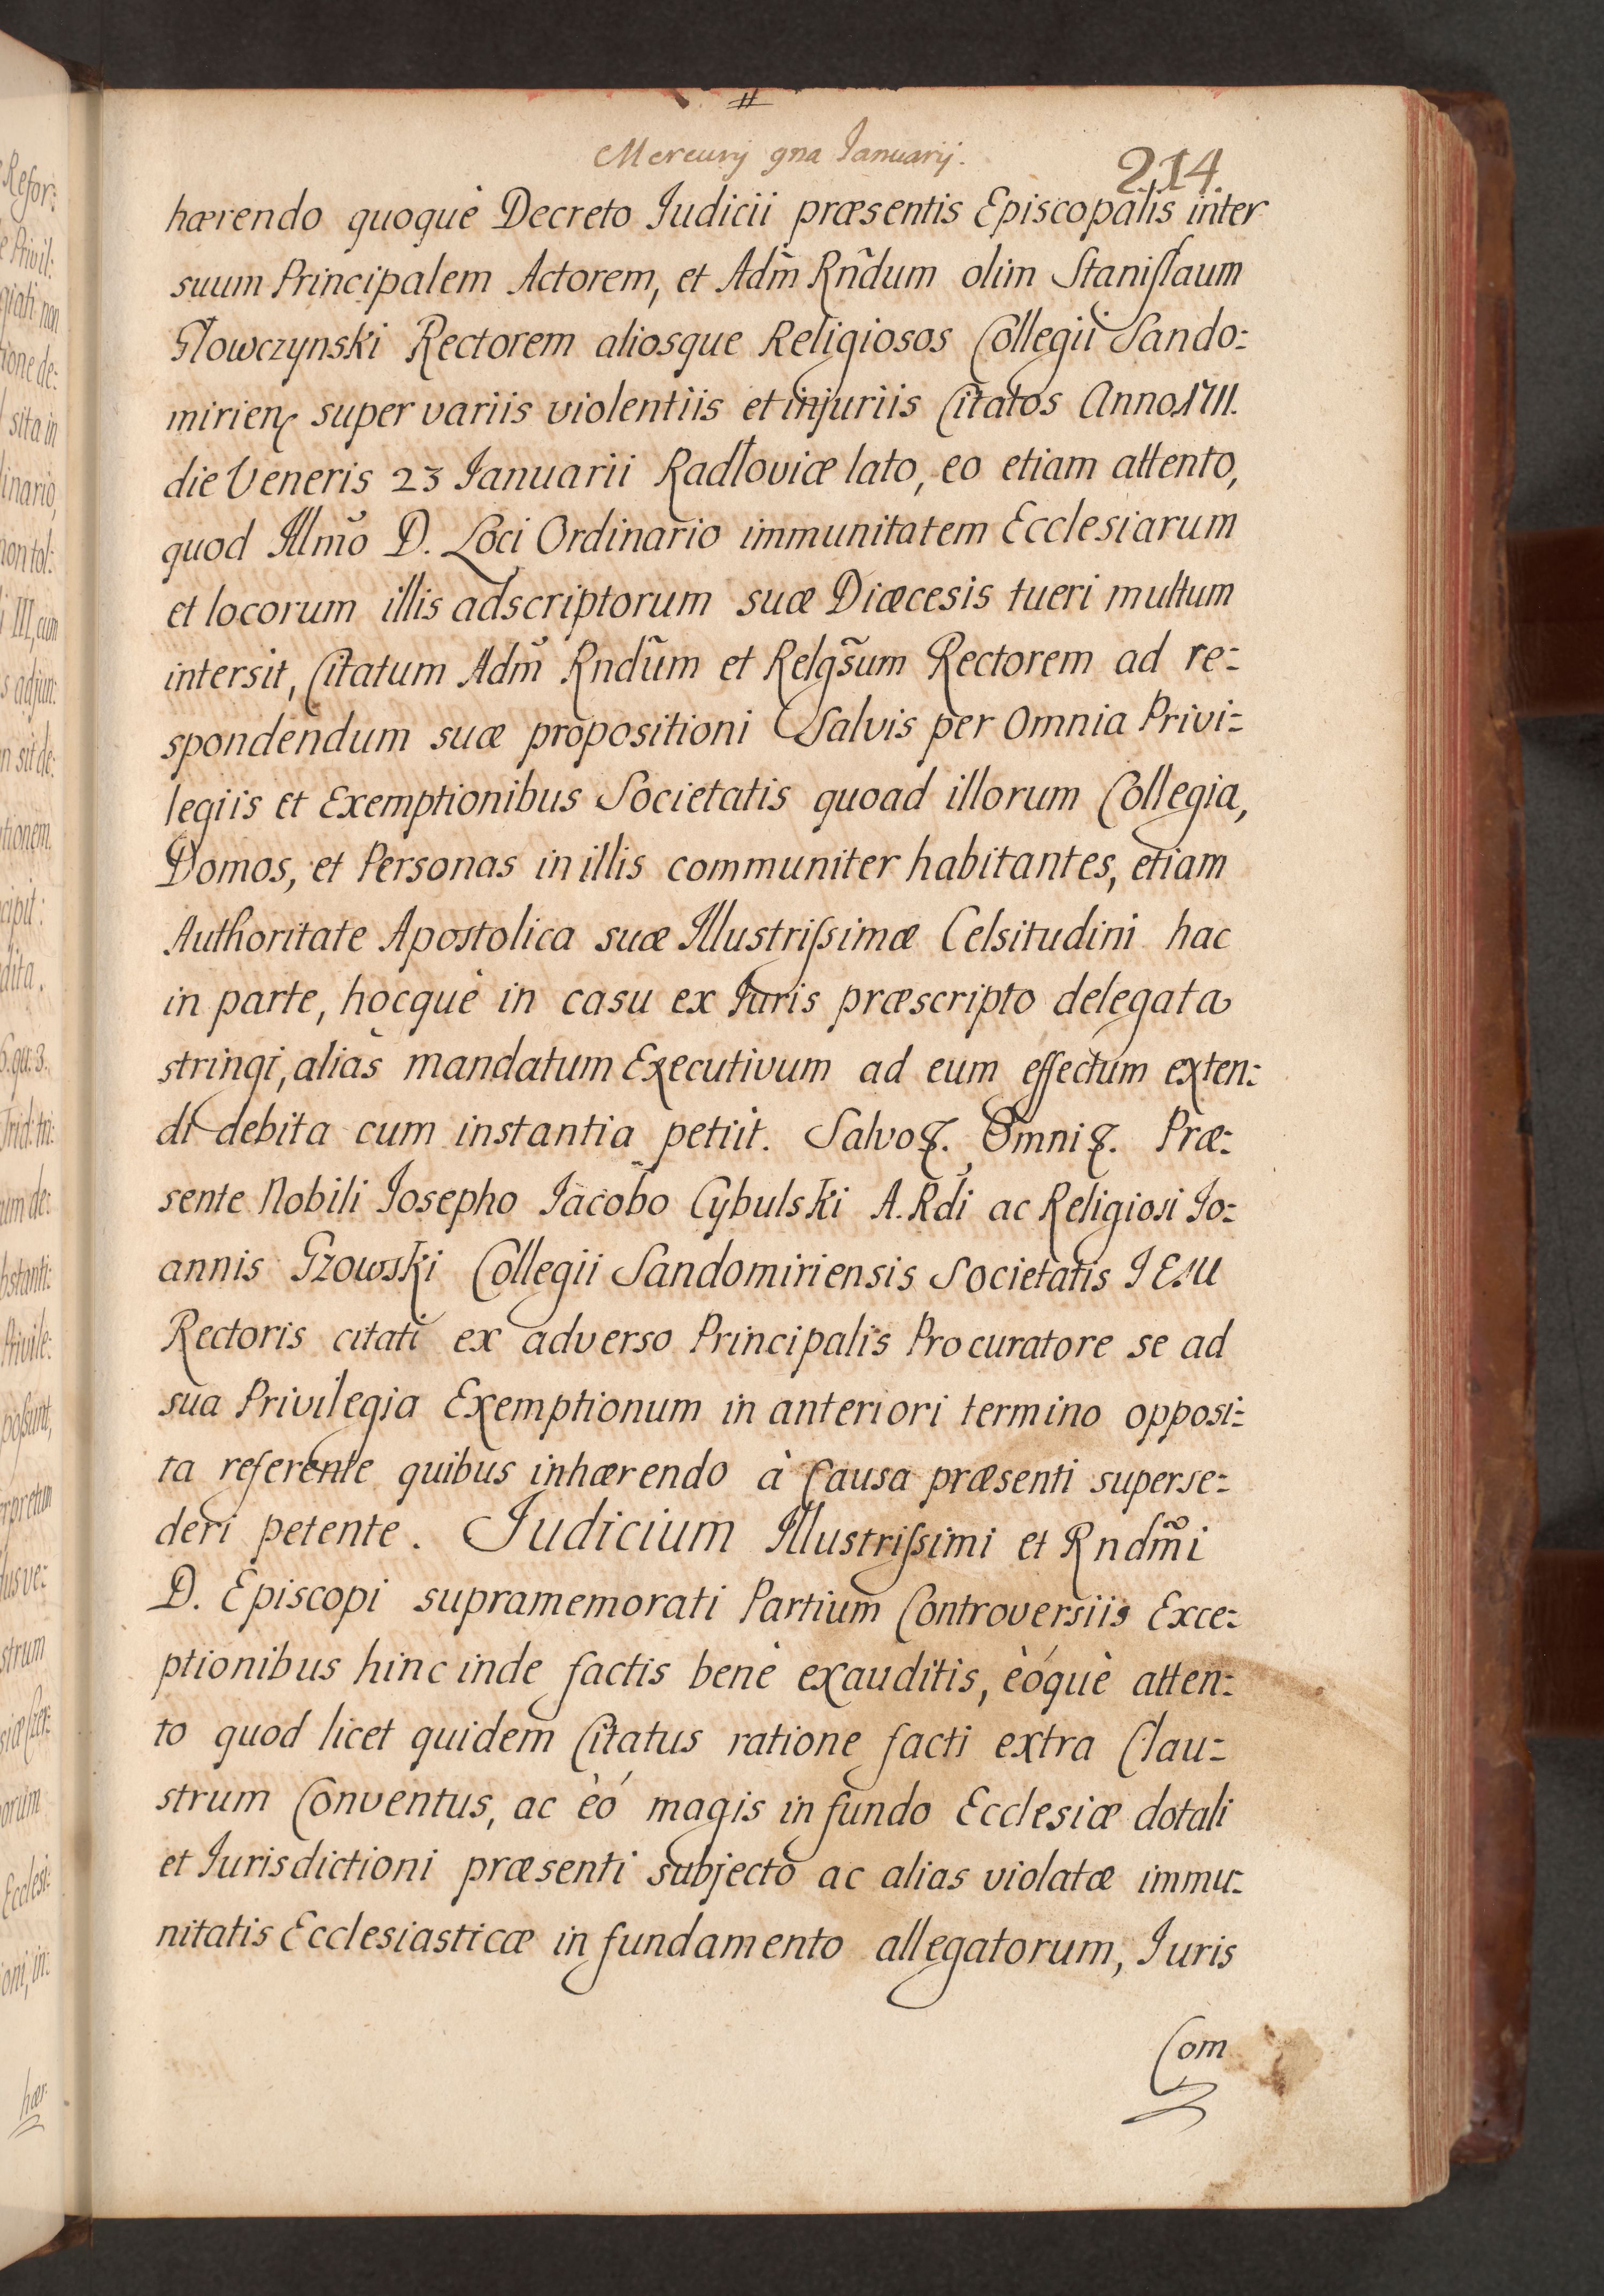 Mercurij 9na Ianuarij.
214.
hærendo quoquè Decreto Iudicii præsentis Episcopalis inter
suum Principalem Actorem, et Adm̃ Rñdum olim Staniſłaum
Głowczynski Rectorem aliosque Religiosos Collegii Sando=
mirien super variis violentiis et injuriis Citatos Anno 1711.
die Veneris 23 Ianuarii Radłoviæ lato, eo etiam attento,
quod Illm̃o D. Loci Ordinario immunitatem Ecclesiarum
et locorum illis adscriptorum suæ Diæcesis tueri multum
intersit, Citatum Adm̃ Rndũm et Relgs̃um Rectorem ad re=
spondendum suæ propositioni Salvis per Omnia Privi=
legiis et Exemptionibus Societatis quoad illorum Collegia,
Domos, et Personas in illis communiter habitantes, etiam
Authoritate Apostolica suæ Illustriſsimæ Celsitudini hac
in parte, hocquè in casu ex Iuris præscripto delegata
stringi, aliàs mandatum Executivum ad eum effectum exten=
di debita cum instantia petiit. Salvoq. Omniq. Præ=
sente Nobili Iosepho Iacobo Cybulski A. Rdi ac Religiosi Io=
annis Gzowski Collegii Sandomiriensis Societatis IESU
Rectoris citati ex adverso Principalis Procuratore se ad
sua Privilegia Exemptionum in anteriori termino opposi=
ta referente quibus inhærendo à Causa præsenti superse=
deri petente. Iudicium Illustriſsimi et Rndm̃i
D. Episcopi supramemorati Partium Controversiis Exce=
ptionibus hinc inde factis benè exauditis, èóquè atten=
to quod licet quidem Citatus ratione facti extra Clau=
strum Conventus, ac èó magis in fundo Ecclesiæ dotali
et Iurisdictioni præsenti subjecto ac alias violatæ immu=
nitatis Ecclesiasticæ in fundamento allegatorum, Iuris
Com